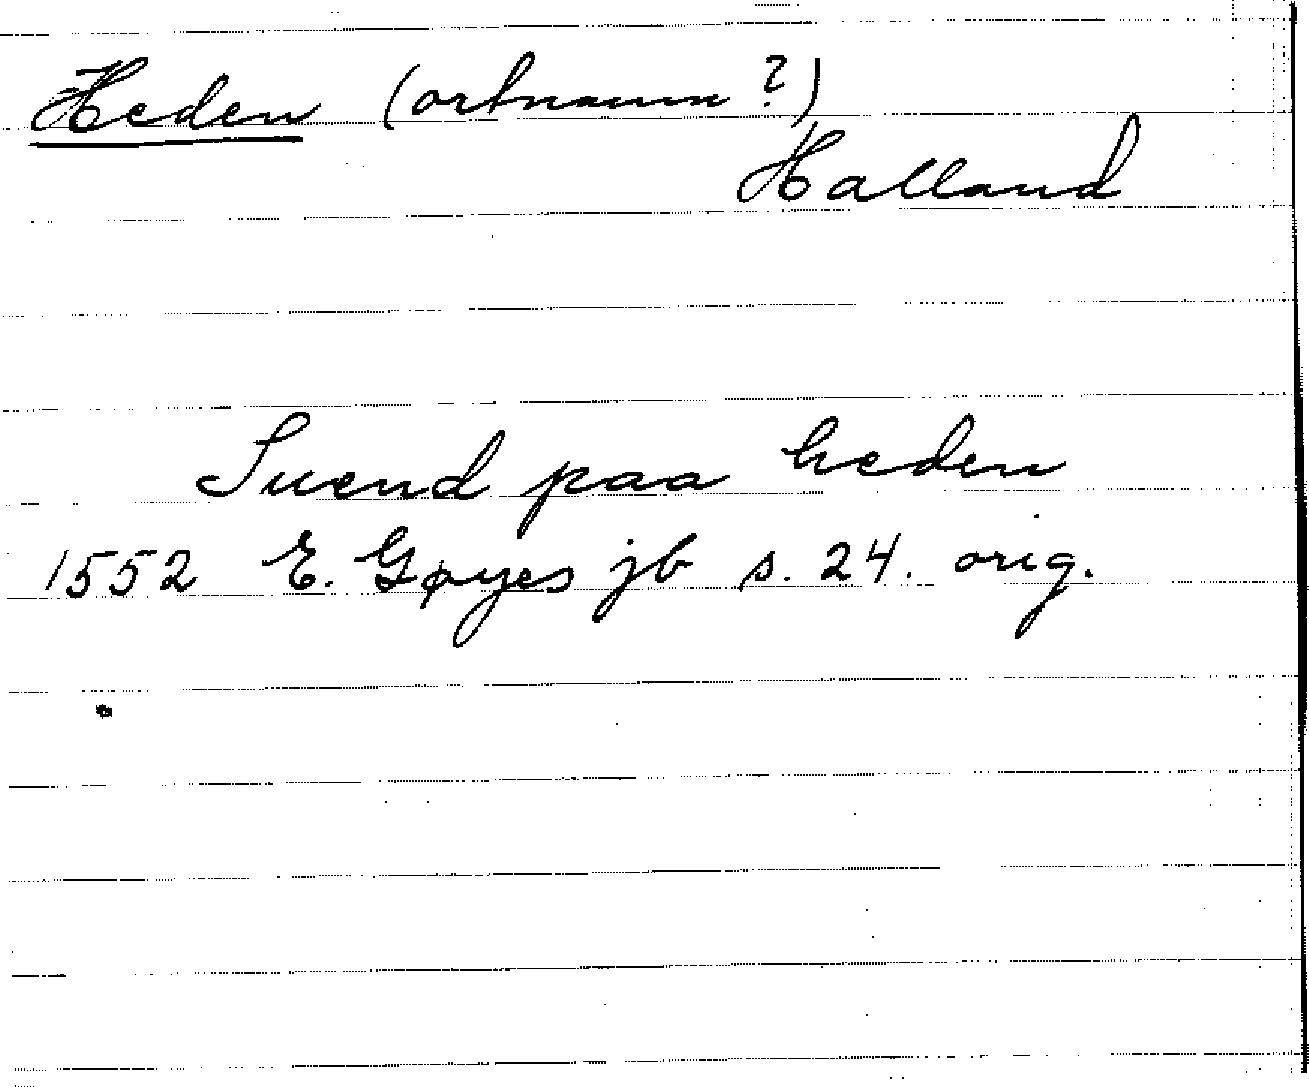 Heden (ortnamn?)
Halland
Suend paa heden
1552 E. Gøyes jb s. 24. orig.